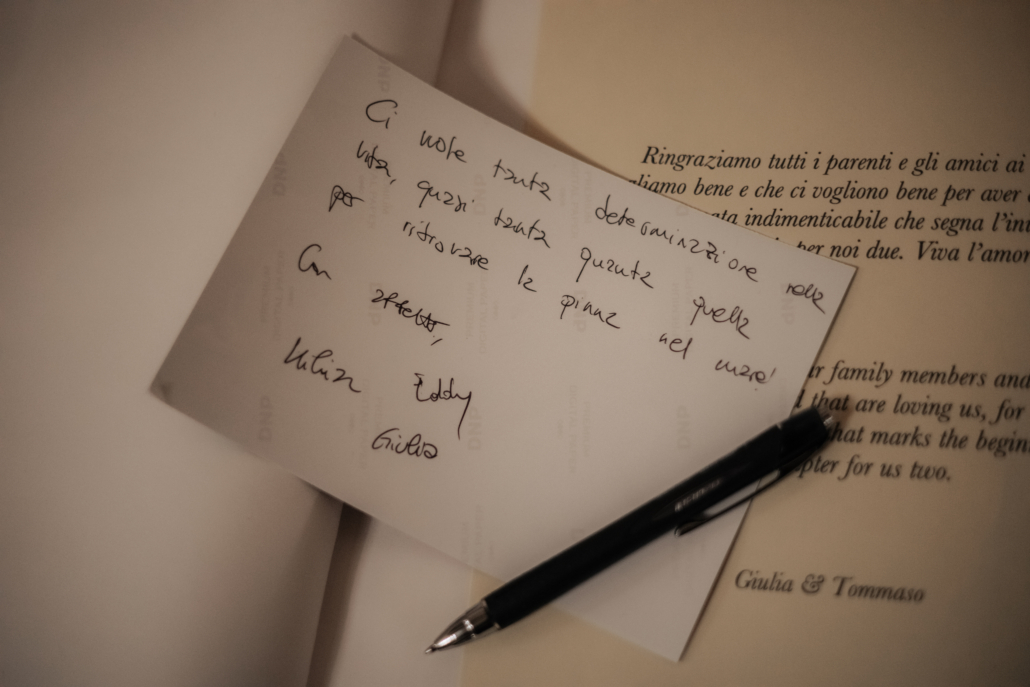 Ci vuole tanta determinazione nella
vita, quasi tanta quanta quella
per ritrovare la pinna nel mare!
Con affetto,
Eddy
Giulia
Ringraziamo tutti i parenti e gli amici ai
gliamo bene e che ci vogliono bene per aver
ata indimenticabile che segna l'ini
per noi due. Viva l'amor
r family members and
that are loving us, for
that marks the begin
pter for us two.
Giulia & Tommaso
DNP
DNP
DNP
DNP
DNP